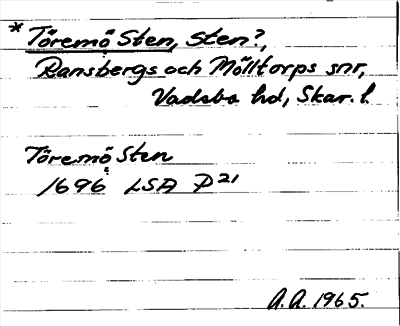 * Töremö Sten, Sten?,
Ransbergs och Mölltorps snr,
Vadsbo hd, Skar. l.
Töremö Sten
1696 LSA P21
A.A. 1965.